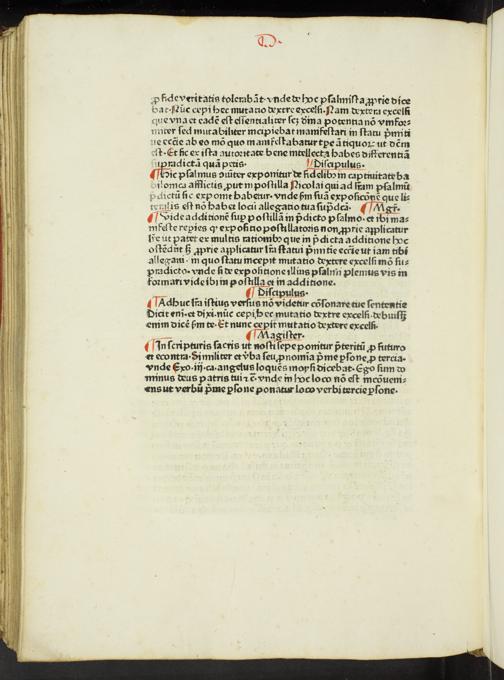 D.
ꝓ fide veritatis tolerabāt. vnde de hoc psalmista ꝓprie dice
bat. Nūc cepi hec mutatio dextre excelsi. Nam dextera excelsi
que vna et eadē est essentialiter scꝫ dīna potentia nō vnifor⸗
miter sed mutabiliter incipiebat manifestari in statu pͥmiti
ue ecctie ab eo mō quo manifestabatur tpe ātiquoꝝ. ut dēm
est. Et sic ex ista autoritate bene intellecta habes differentiā
supradictā quā petis. ¶Discipulus.
¶Hic psalmus cōiter exponitur de fidelibꝰ in captiuitate ba
bilonica afflictis, put in postilla Nicolai qui ad lr̄am psalmū
p̄dictū sic exponit habetur. vnde scd̄m suā expositionē que li⸗
teralis est nō habet loci allegatio tua sup̄dcā. ¶Mgr̄.
¶Vide additionē sup postillā in p̄dicto psalmo. et ibi ma⸗
nifeste repies ꝙ expositio postillatoris non ꝓprie applicatur
lr̄e ut patet ex multis rationibꝰ que in p̄dicta additione hoc
ostendūt sꝫ ꝓprie applicatur lr̄a statui pͥmitiue ecctie ut iam tibi
allegaui. in quo statu incepit mutatio dextere excelsi mō su⸗
pradicto. vnde si de expositione illius psalmi plenius vis in
formari vide ibi in postilla et in additione.
¶Discipulus.
¶Adhuc lr̄a istius versus nō videtur cōsonare tue sententie
Dicit eni. et dixi. nūc cepi, hec mutatio dextre excelsi. debuissꝫ
enim dicē scd̄m te. Et nunc cepit mutatio dextere excelsi.
¶Magister.
¶In scripturis sacris ut nosti sepe ponitur p̄teritū ꝓ futuro
et econtra. Similiter et v̄ba seu ꝓnomīa pͥme ꝑsone, ꝓ tercia.
vnde Exo. iij. ca. angelus loquēs moysi dicebat. Ego sum do
minus deus patris tui ⁊c̄. vnde in hoc loco nō est inconueni⸗
ens ut verbū pͥme ꝑsone ponatur loco verbi tercie ꝑsone.